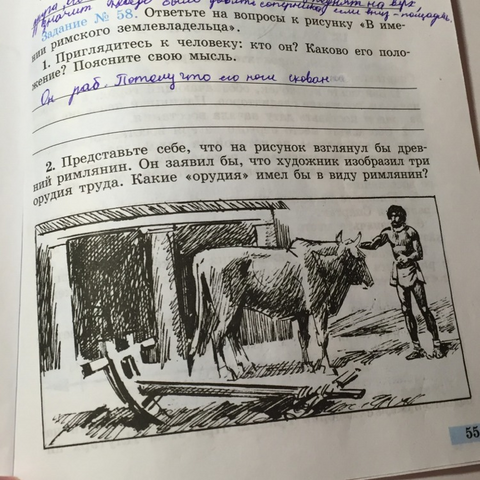 значит
Задание № 58. Ответьте на вопросы к рисунку «В име-
нии римского землевладельца».
1. Приглядитесь к человеку: кто он? Каково его поло-
жение? Поясните свою мысль.
Он раб. Потому что его ноги скован
2. Представьте себе, что на рисунок взглянул бы древ-
ний римлянин. Он заявил бы, что художник изобразил три
орудия труда. Какие «орудия» имел бы в виду римлянин?
55